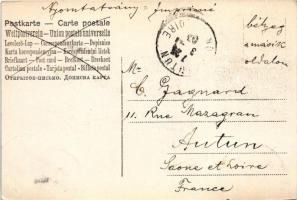 Nyomtatvány - Imprimé
Postkarte — Carte postale
Weltpostverein — Union postale universelle
Levelező-Lap — Correspondenzkarte — Dopisnice
Karta korespondencyjna — Korespondenční lístek
Briefkaart — Post card — Brefkort — Brevkort
Cartolina postale — Tarjeta postal — Bilhete postal
Открытое письмо. Дописна карта
AUTUN
bélyeg
a másik
oldalon
Mr
C. Gagnard
11. Rue Mazagran
Autun
Saone et Loire
France